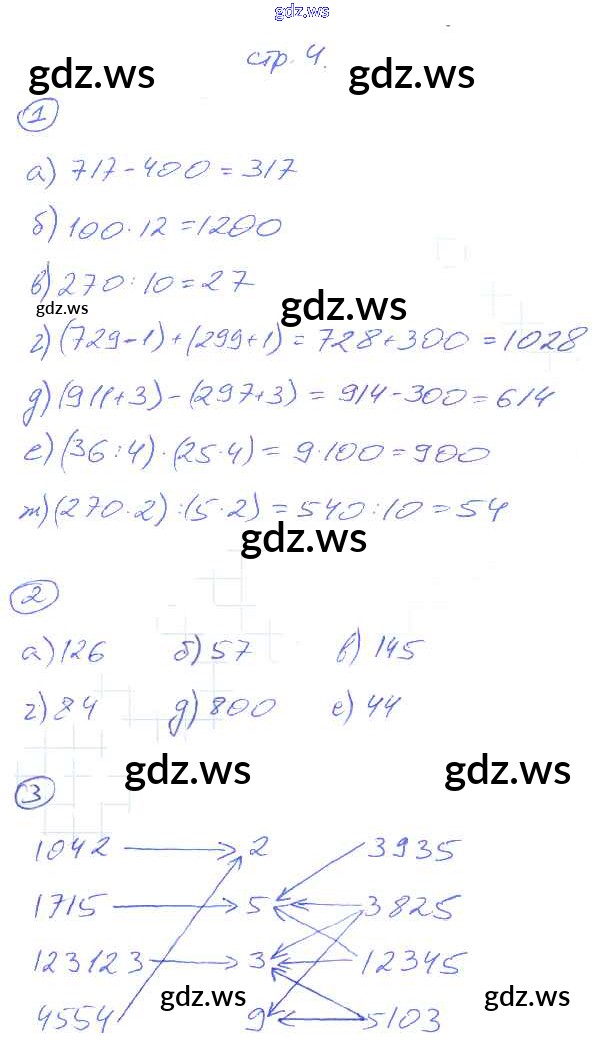 gdz.ws
стр. 4.
gdz.ws gdz.ws
1
а) 717 - 400 = 317
б) 100 · 12 = 1200
в) 270 : 10 = 27
gdz.ws gdz.ws
г) (729 - 1) + (299 + 1) = 728 + 300 = 1028
д) (911 + 3) - (297 + 3) = 914 - 300 = 614
е) (36 : 4) · (25 · 4) = 9 · 100 = 900
ж) (270 · 2) : (5 · 2) = 540 : 10 = 54
gdz.ws
2
а) 126 б) 57 в) 145
г) 84 д) 800 е) 44
gdz.ws gdz.ws
3
1042 2 3935
1715 5 3825
123123 3 12345
gdz.ws gdz.ws
4554 9 5103